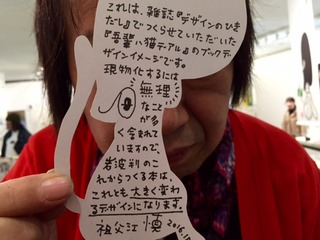 これは、雑誌『デザインのひき
だし』でつくらせていただいた
『吾輩ハ猫デアル』のブックデ
ザインイメージです。
現物化するには
無理
なこと
が多
く含まれて
いますので、
岩波判のこ
れからつくる本は、
これとも大きく変わ
るデザインになります。
祖父江 慎